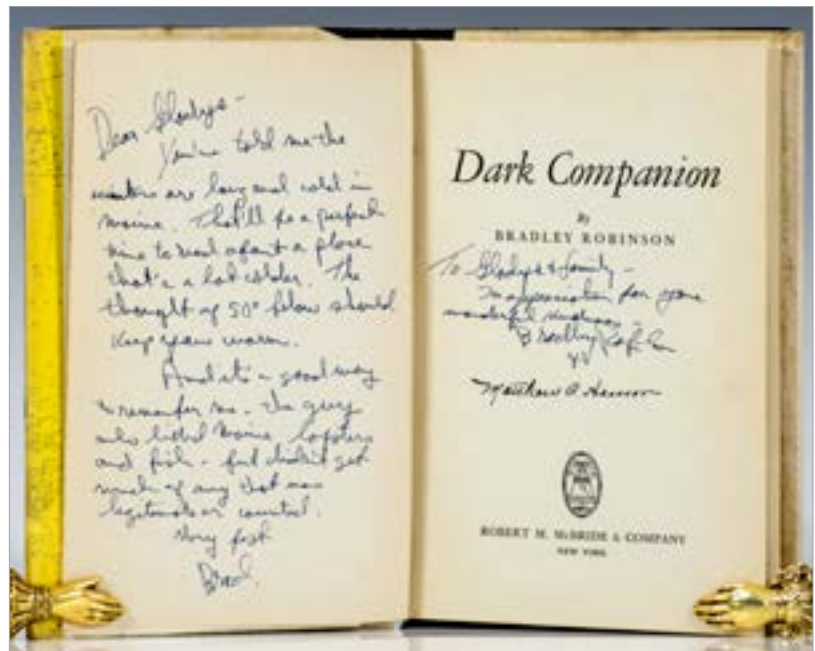 Dear Gladys -
You've told me the
winters are long and cold in
Maine. That'll be a perfect
time to read about a place
that's a lot colder. The
thought of 50° below should
keep you warm.
And it's a good way
to remember me - the guy
who liked Maine, lobsters
and fish - but didn't get
much of any that was
legitimate or
Very best
Brad.
Dark Companion
By
BRADLEY ROBINSON
To Gladys & family -
In appreciation for your
wonderful kindness
Bradley Robinson
Matthew A. Henson
ROBERT M. McBRIDE & COMPANY
NEW YORK